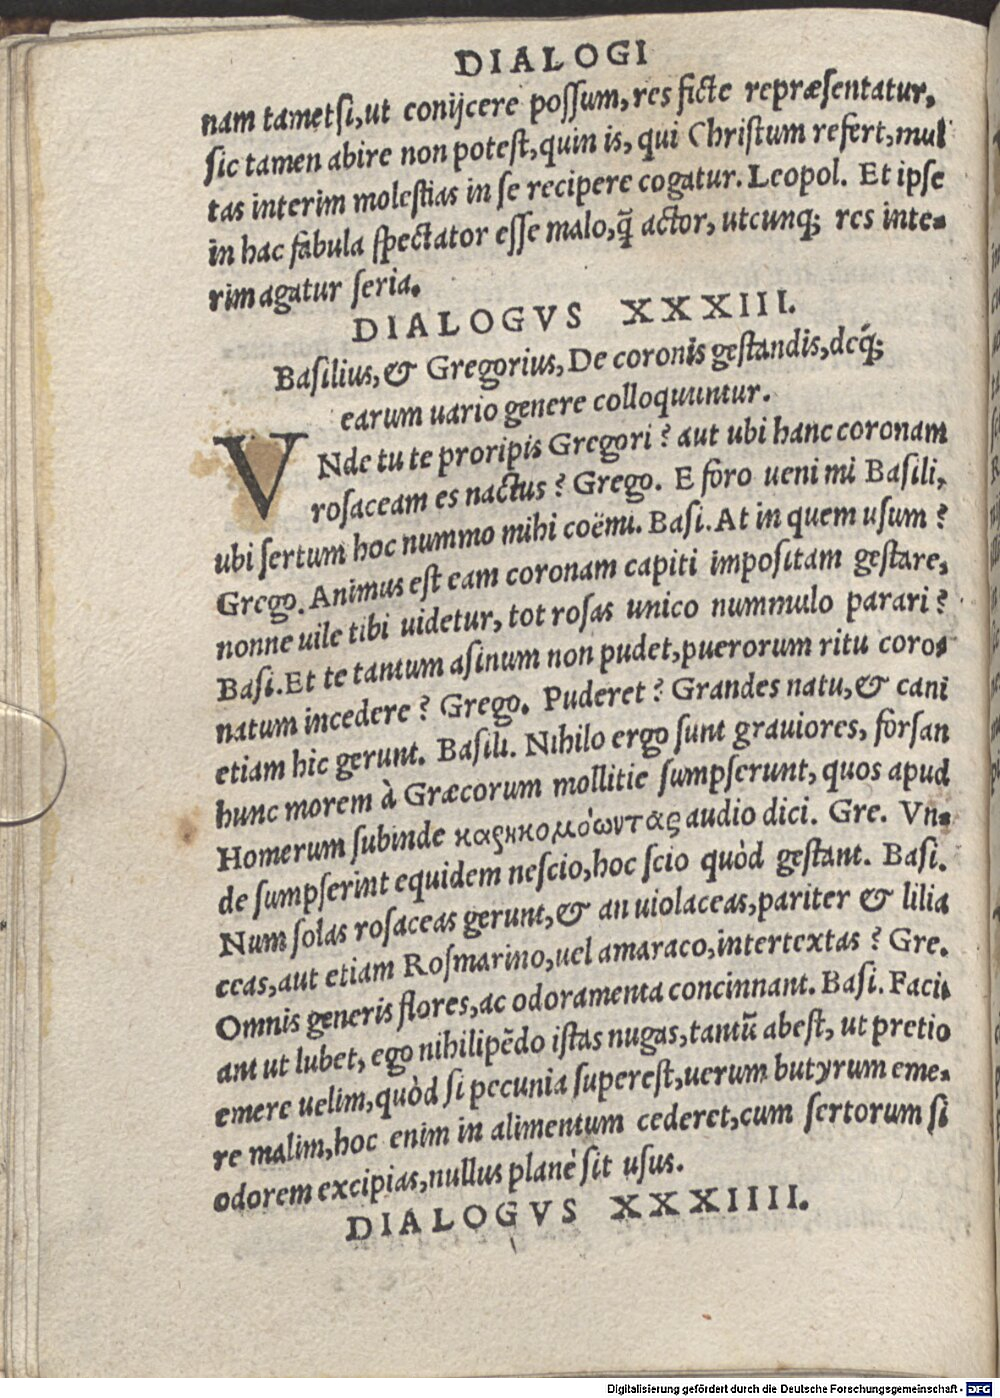 DIALOGI
nam tametsi,ut conijcere possum,res ficte repræsentatur,
sic tamen abire non potest,quin is, qui Christum refert,mul
tas interim molestias in se recipere cogatur. Leopol. Et ipse
in hac fabula spectator esse malo,q̃ actor, utcunq; res inte-
rim agatur seria.
DIALOGVS XXXIII.
Basilius,& Gregorius, De coronis gestandis,deq́;
earum uario genere colloquuntur.
VNde tu te proripis Gregori? aut ubi hanc coronam
rosaceam es nactus? Grego. E foro ueni mi Basili,
ubi sertum hoc nummo mihi coëmi. Basi. At in quem usum?
Grego. Animus est eam coronam capiti impositam gestare,
nonne uile tibi uidetur, tot rosas unico nummulo parari?
Basi. Et te tantum asinum non pudet,puerorum ritu coro-
natum incedere? Grego. Puderet? Grandes natu,& cani
etiam hic gerunt. Basili. Nihilo ergo sunt grauiores, forsan
hunc morem à Græcorum mollitie sumpserunt, quos apud
Homerum subinde καρηκομόωντας audio dici. Gre. Vn-
de sumpserint equidem nescio,hoc scio quòd gestant. Basi.
Num solas rosaceas gerunt,& an uiolaceas,pariter & lilia
ceas,aut etiam Rosmarino,uel amaraco,intertextas? Gre.
Omnis generis flores,ac odoramenta concinnant. Basi. Faci-
ant ut lubet, ego nihilipẽdo istas nugas,tantũ abest, ut pretio
emere uelim,quòd si pecunia superest,uerum butyrum eme-
re malim,hoc enim in alimentum cederet,cum sertorum si
odorem excipias,nullus planè sit usus.
DIALOGVS XXXIIII.
Digitalisierung gefördert durch die Deutsche Forschungsgemeinschaft - DFG